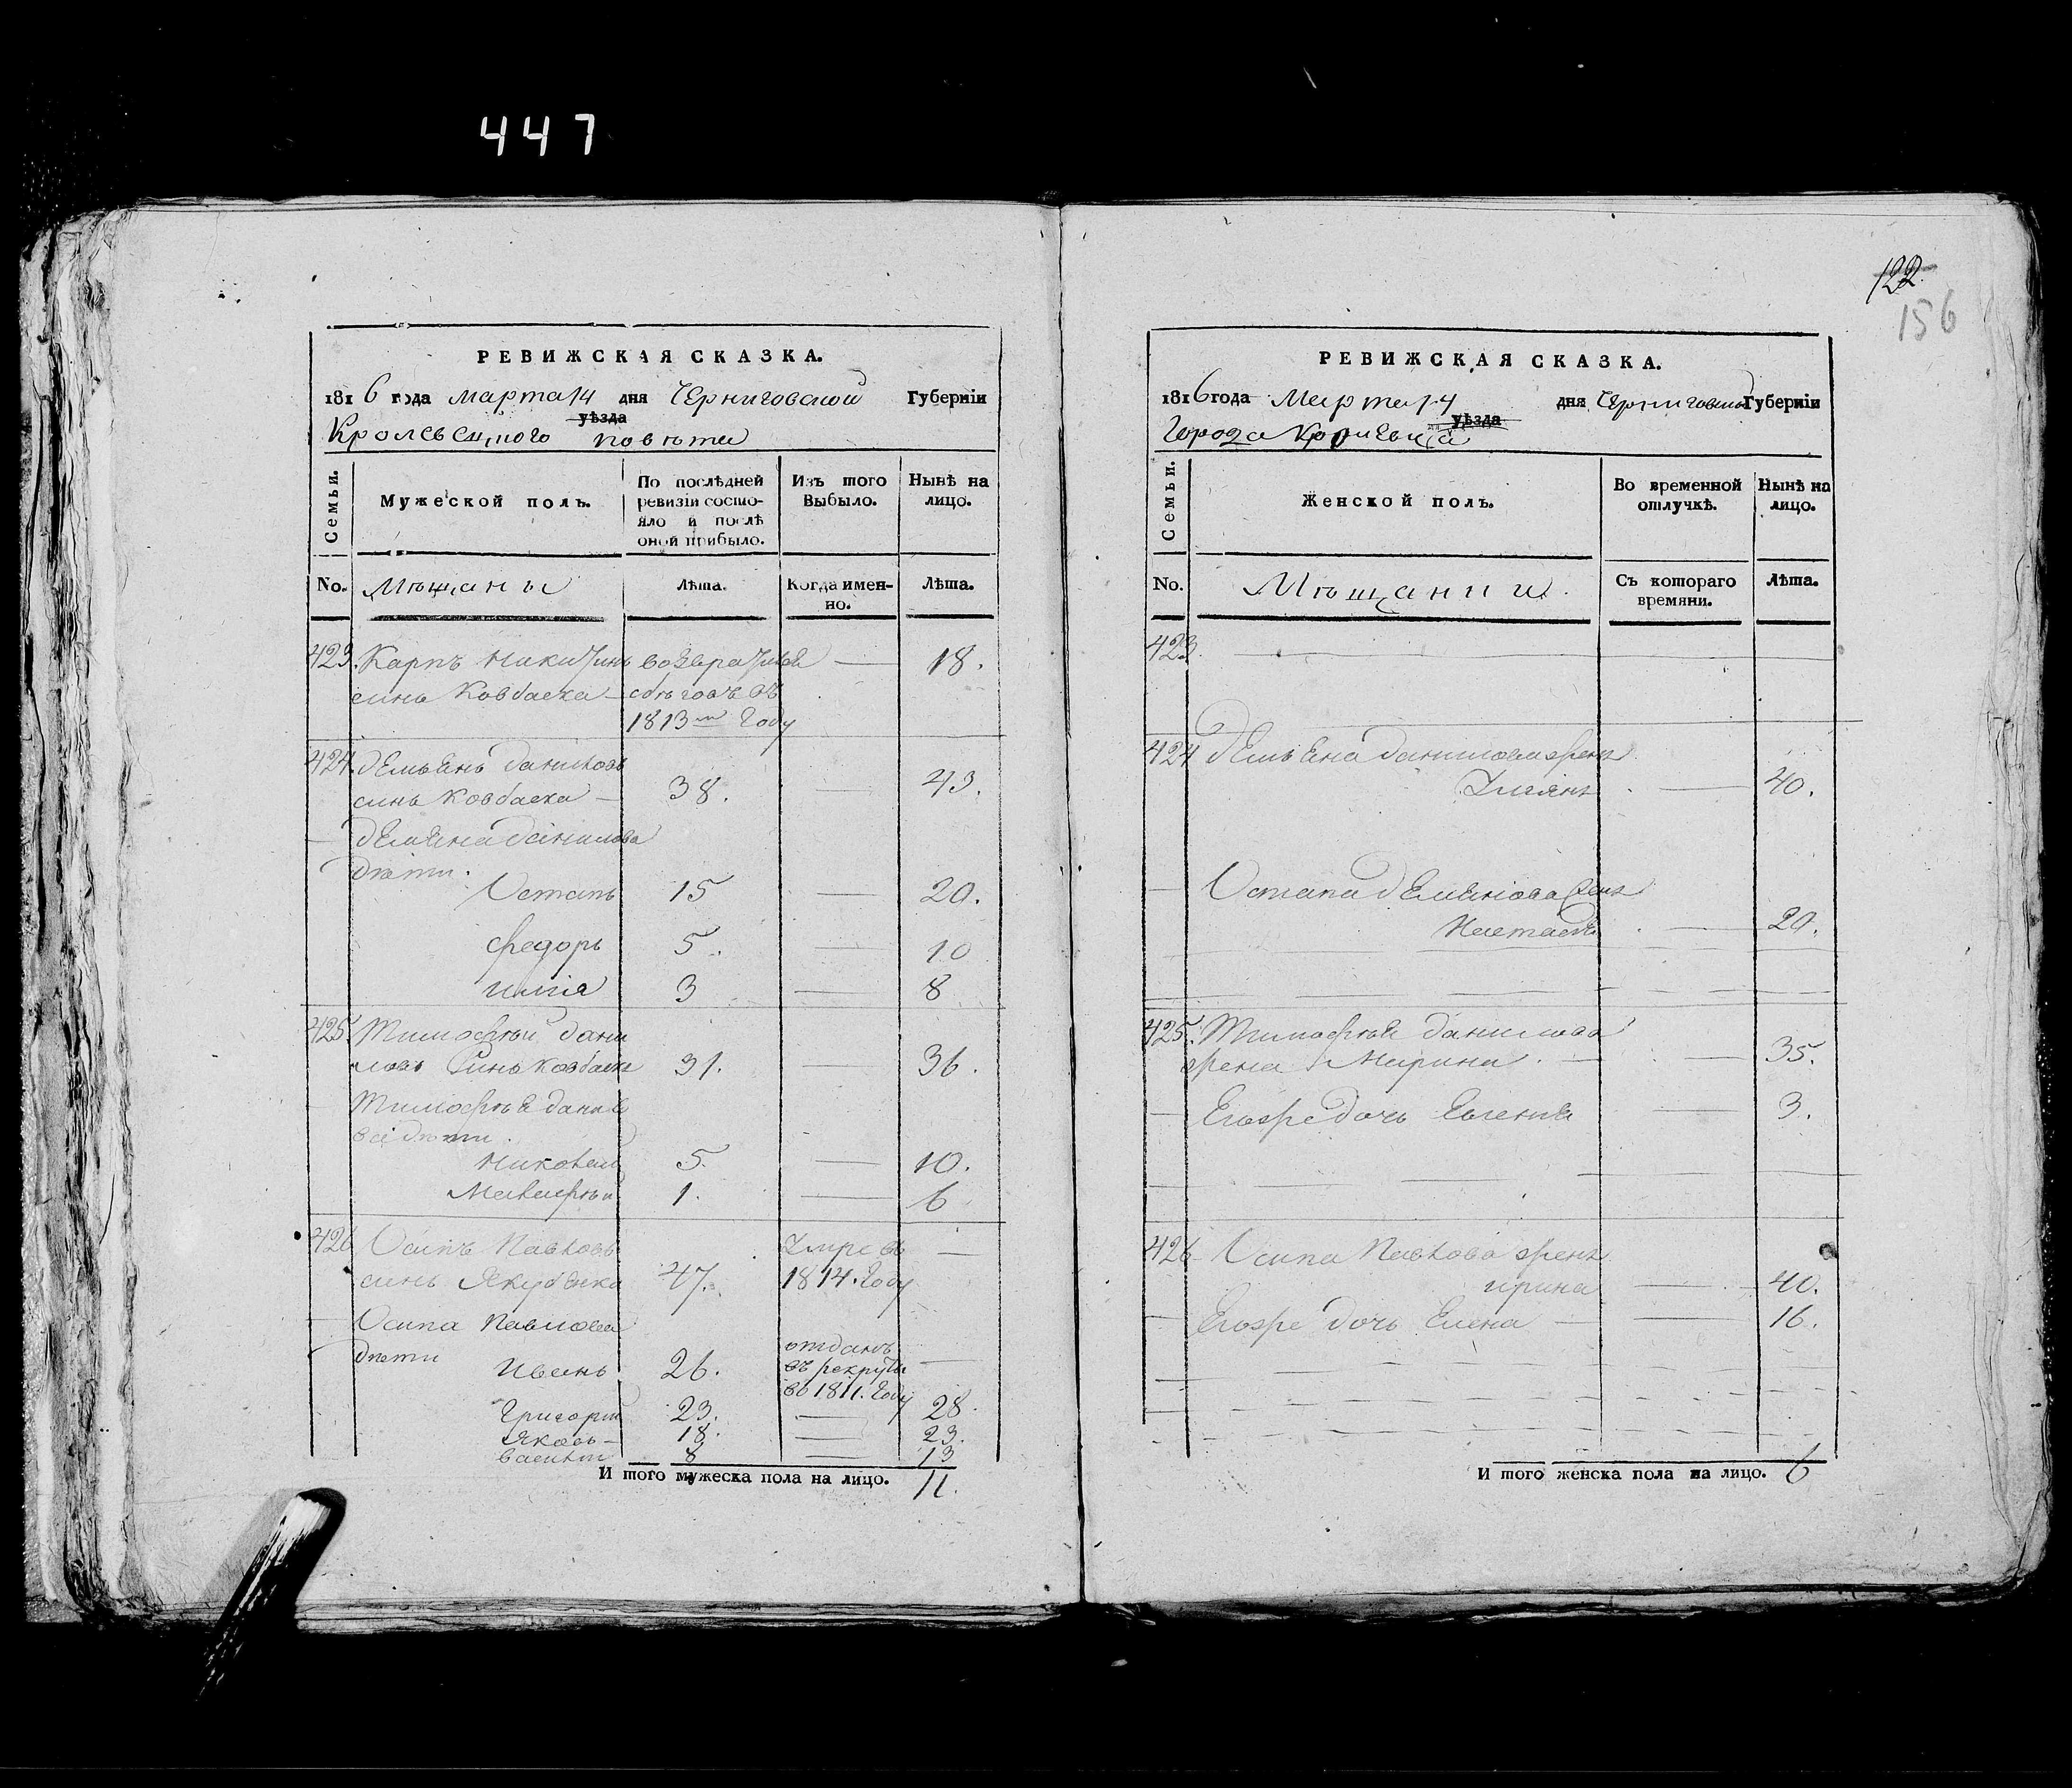 447
РЕВИЖСКАЯ СКАЗКА.
1816 года марта 14 дня Черниговской Губерніи
уѣзда
Кролевецкого повѣта
Семьи.
Мужеской полъ.
По послѣдней ревизіи состояло и послѣ оной прибыло.
Изъ того Выбыло.
Нынѣ на лицо.
No.
Мѣщаны
Лѣта.
Когда именно.
Лѣта.
423. Карпъ Никитинъ возвратился — 18.
синъ Ковбаска — сбѣговъ въ
1813м Году
424. Демьянъ Даниловъ
синъ Ковбаска — 38. — 43.
— Демяна Данилова
дѣти.
Остапъ 15 — 20.
Федоръ 5. — 10
Илія 3 — 8
425. Тимофѣй Дани
ловъ Синъ Ковбаска 31. — 36.
— Тимофѣя Данило
ва дѣти.
Николай 5. — 10.
1. — 6
426 Осипъ Павловъ Умре въ —
синъ 47. 1814. Году
— Осипа Павлова
дѣти
Иванъ 26. отданъ въ рекруты во 1811. Году —
Григорій 23. — 28.
Яковъ — 18. — 23.
Василій 8 — 13
И того мужеска пола на лицо. 11.
122.
156
РЕВИЖСКАЯ СКАЗКА.
1816 года Марта 14 дня Черниговской Губерніи
уѣзда
Города Кролевца
Семьи.
Женской полъ.
Во временной отлучкѣ.
Нынѣ на лицо.
No.
Мѣщанки.
Съ котораго времяни.
Лѣта.
423. —
424 Демьяна Данилова жена
Уляна — 40.
— Остапа Демянова жена
Настася — 20.
425. Тимофѣя Данилова
жена Марина — 35.
— Егожре дочь Евгенія — 3.
426 Осипа Павлова жена
Ирина — 40.
— Егожре дочь Елена — 16.
И того женска пола на лицо. 6